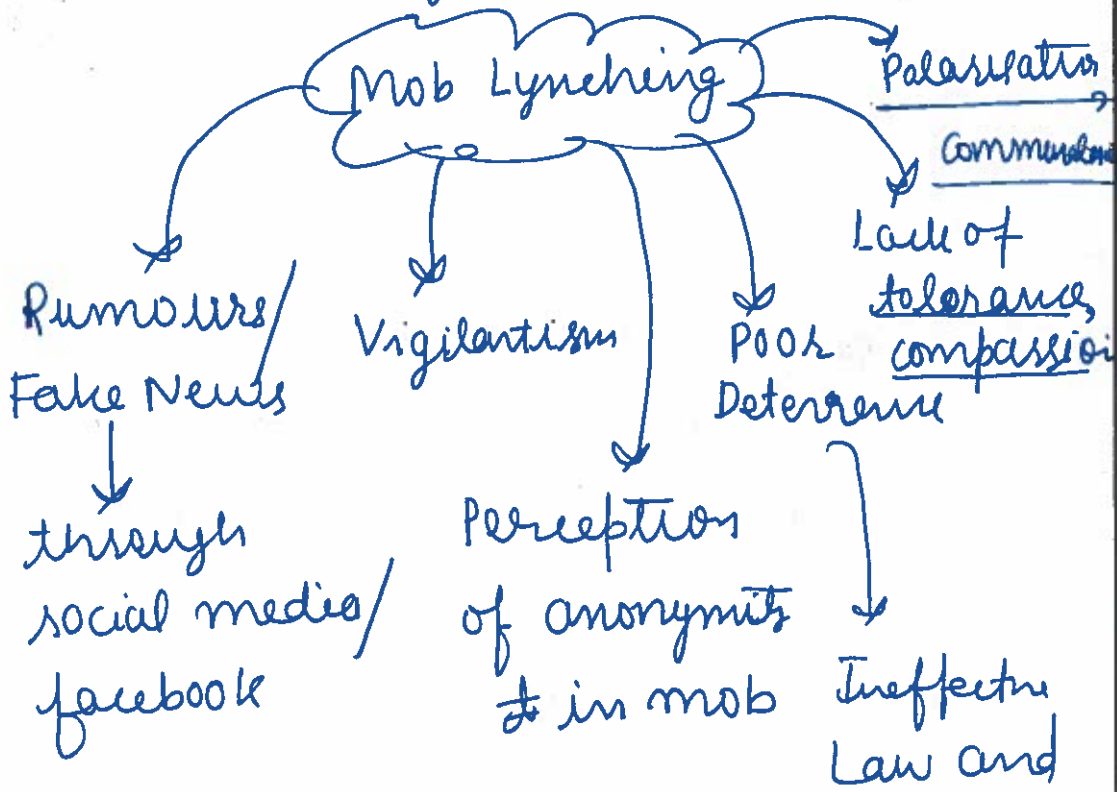 Mob Lynching
Polarisation,
Lack of
tolerance,
compassion
Rumours/
Fake News
through
social media/
facebook
Vigilantism
Perception
of anonymity
in mob
Poor
Deterrence
Ineffective
Law and